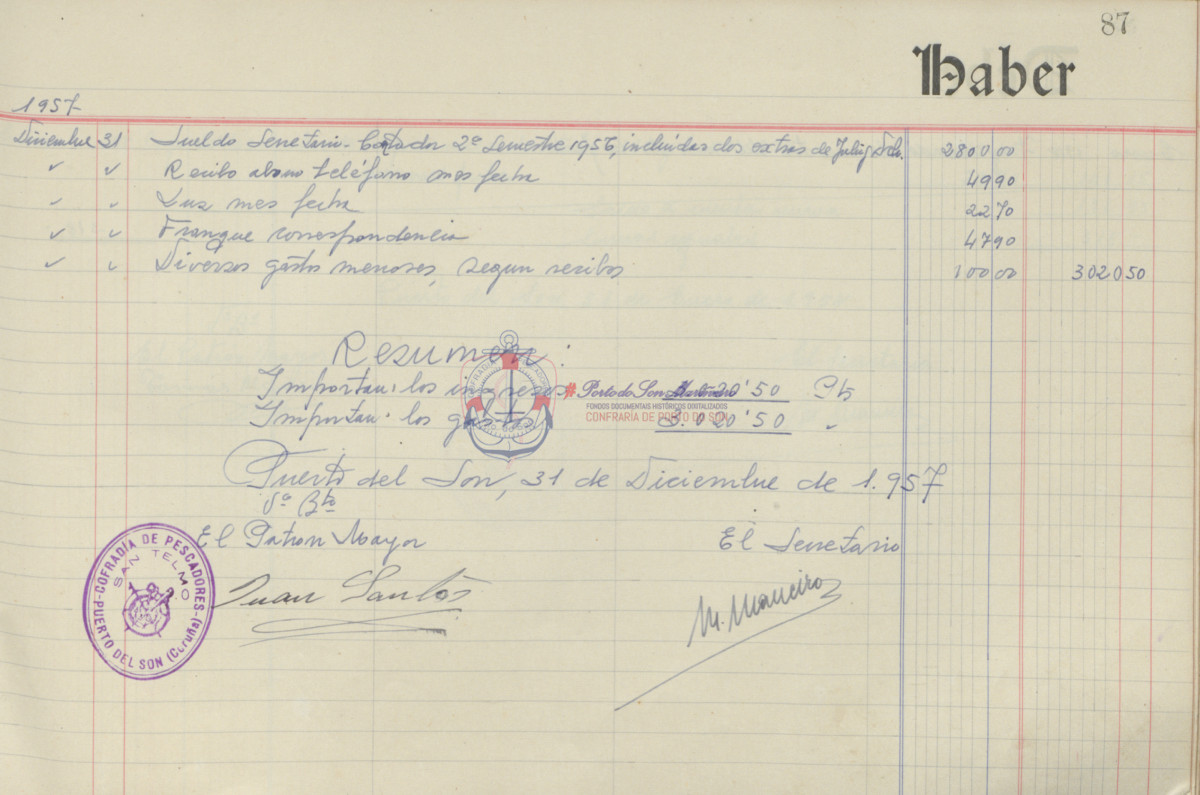 87
Haber
1957
Diciembre 31 Sueldo Secretario-Contador 2º Semestre 1956, incluídas dos extras de Julio y Dcb. 2800 00
✓ ✓ Recibo abono teléfono mes fecha 49 90
✓ ✓ Luz mes fecha 22 70
✓ ✓ Franqueo correspondencia 47 90
✓ ✓ Diversos gastos menores, segun recibos 100 00 3020 50
Resumen:
Importan: los ingresos 20'50 Pts
Importan: los gastos 3.020'50 "
Puerto del Son, 31 de Diciembre de 1.957
Vº Bº
El Patron Mayor El Secretario
Juan Santos M. Maneiro
COFRADIA DE PESCADORES
SAN TELMO
PUERTO DEL SON (Coruña)
COFRADIA DE PESCADORES
#PortodoSon
FONDOS DOCUMENTAIS HISTÓRICOS DIGITALIZADOS
CONFRARÍA DE PORTO DO SON